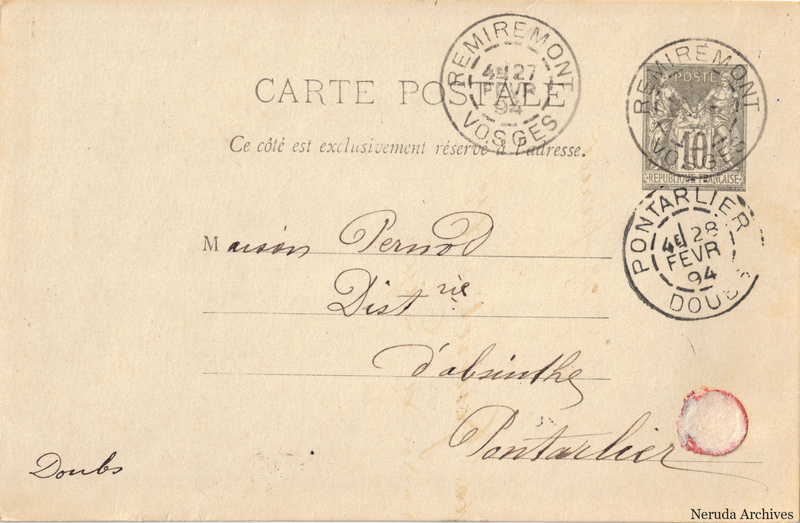 REMIREMONT
4E 27
FEVR
94
VOSGES
REMIREMONT
VOSGES
POSTE
10
REPUBLIQUE FRANÇAISE
CARTE POSTALE
Ce côté est exclusivement réservé à l'adresse.
PONTARLIER
4E 28
FEVR
94
DOUBS
Maison Pernod
Dist rie
d'absinthe
Pontarlier
Doubs
Neruda Archives